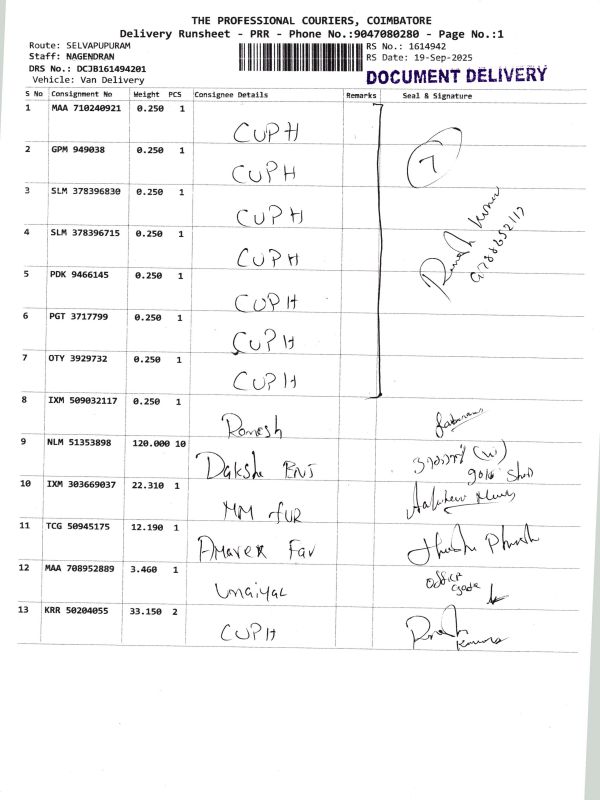 THE PROFESSIONAL COURIERS, COIMBATORE
Delivery Runsheet - PRR - Phone No.:9047080280 - Page No.:1
Route: SELVAPUPURAM
RS No.: 1614942
Staff: NAGENDRAN
RS Date: 19-Sep-2025
DRS No.: DCJB161494201
DOCUMENT DELIVERY
Vehicle: Van Delivery
S No Consignment No Weight PCS Consignee Details Remarks Seal & Signature
1 MAA 710240921 0.250 1
CUPH
7
2 GPM 949038 0.250 1
CUPH
3 SLM 378396830 0.250 1
CUPH
4 SLM 378396715 0.250 1
CUPH
5 PDK 9466145 0.250 1
CUPH
6 PGT 3717799 0.250 1
CUPH
7 OTY 3929732 0.250 1
CUPH
8 IXM 509032117 0.250 1
Romesh
9 NLM 51353898 120.000 10
Daksha
10 IXM 303669037 22.310 1
MM fUR
11 TCG 50945175 12.190 1
12 MAA 708952889 3.460 1
office
13 KRR 50204055 33.150 2
CUPH